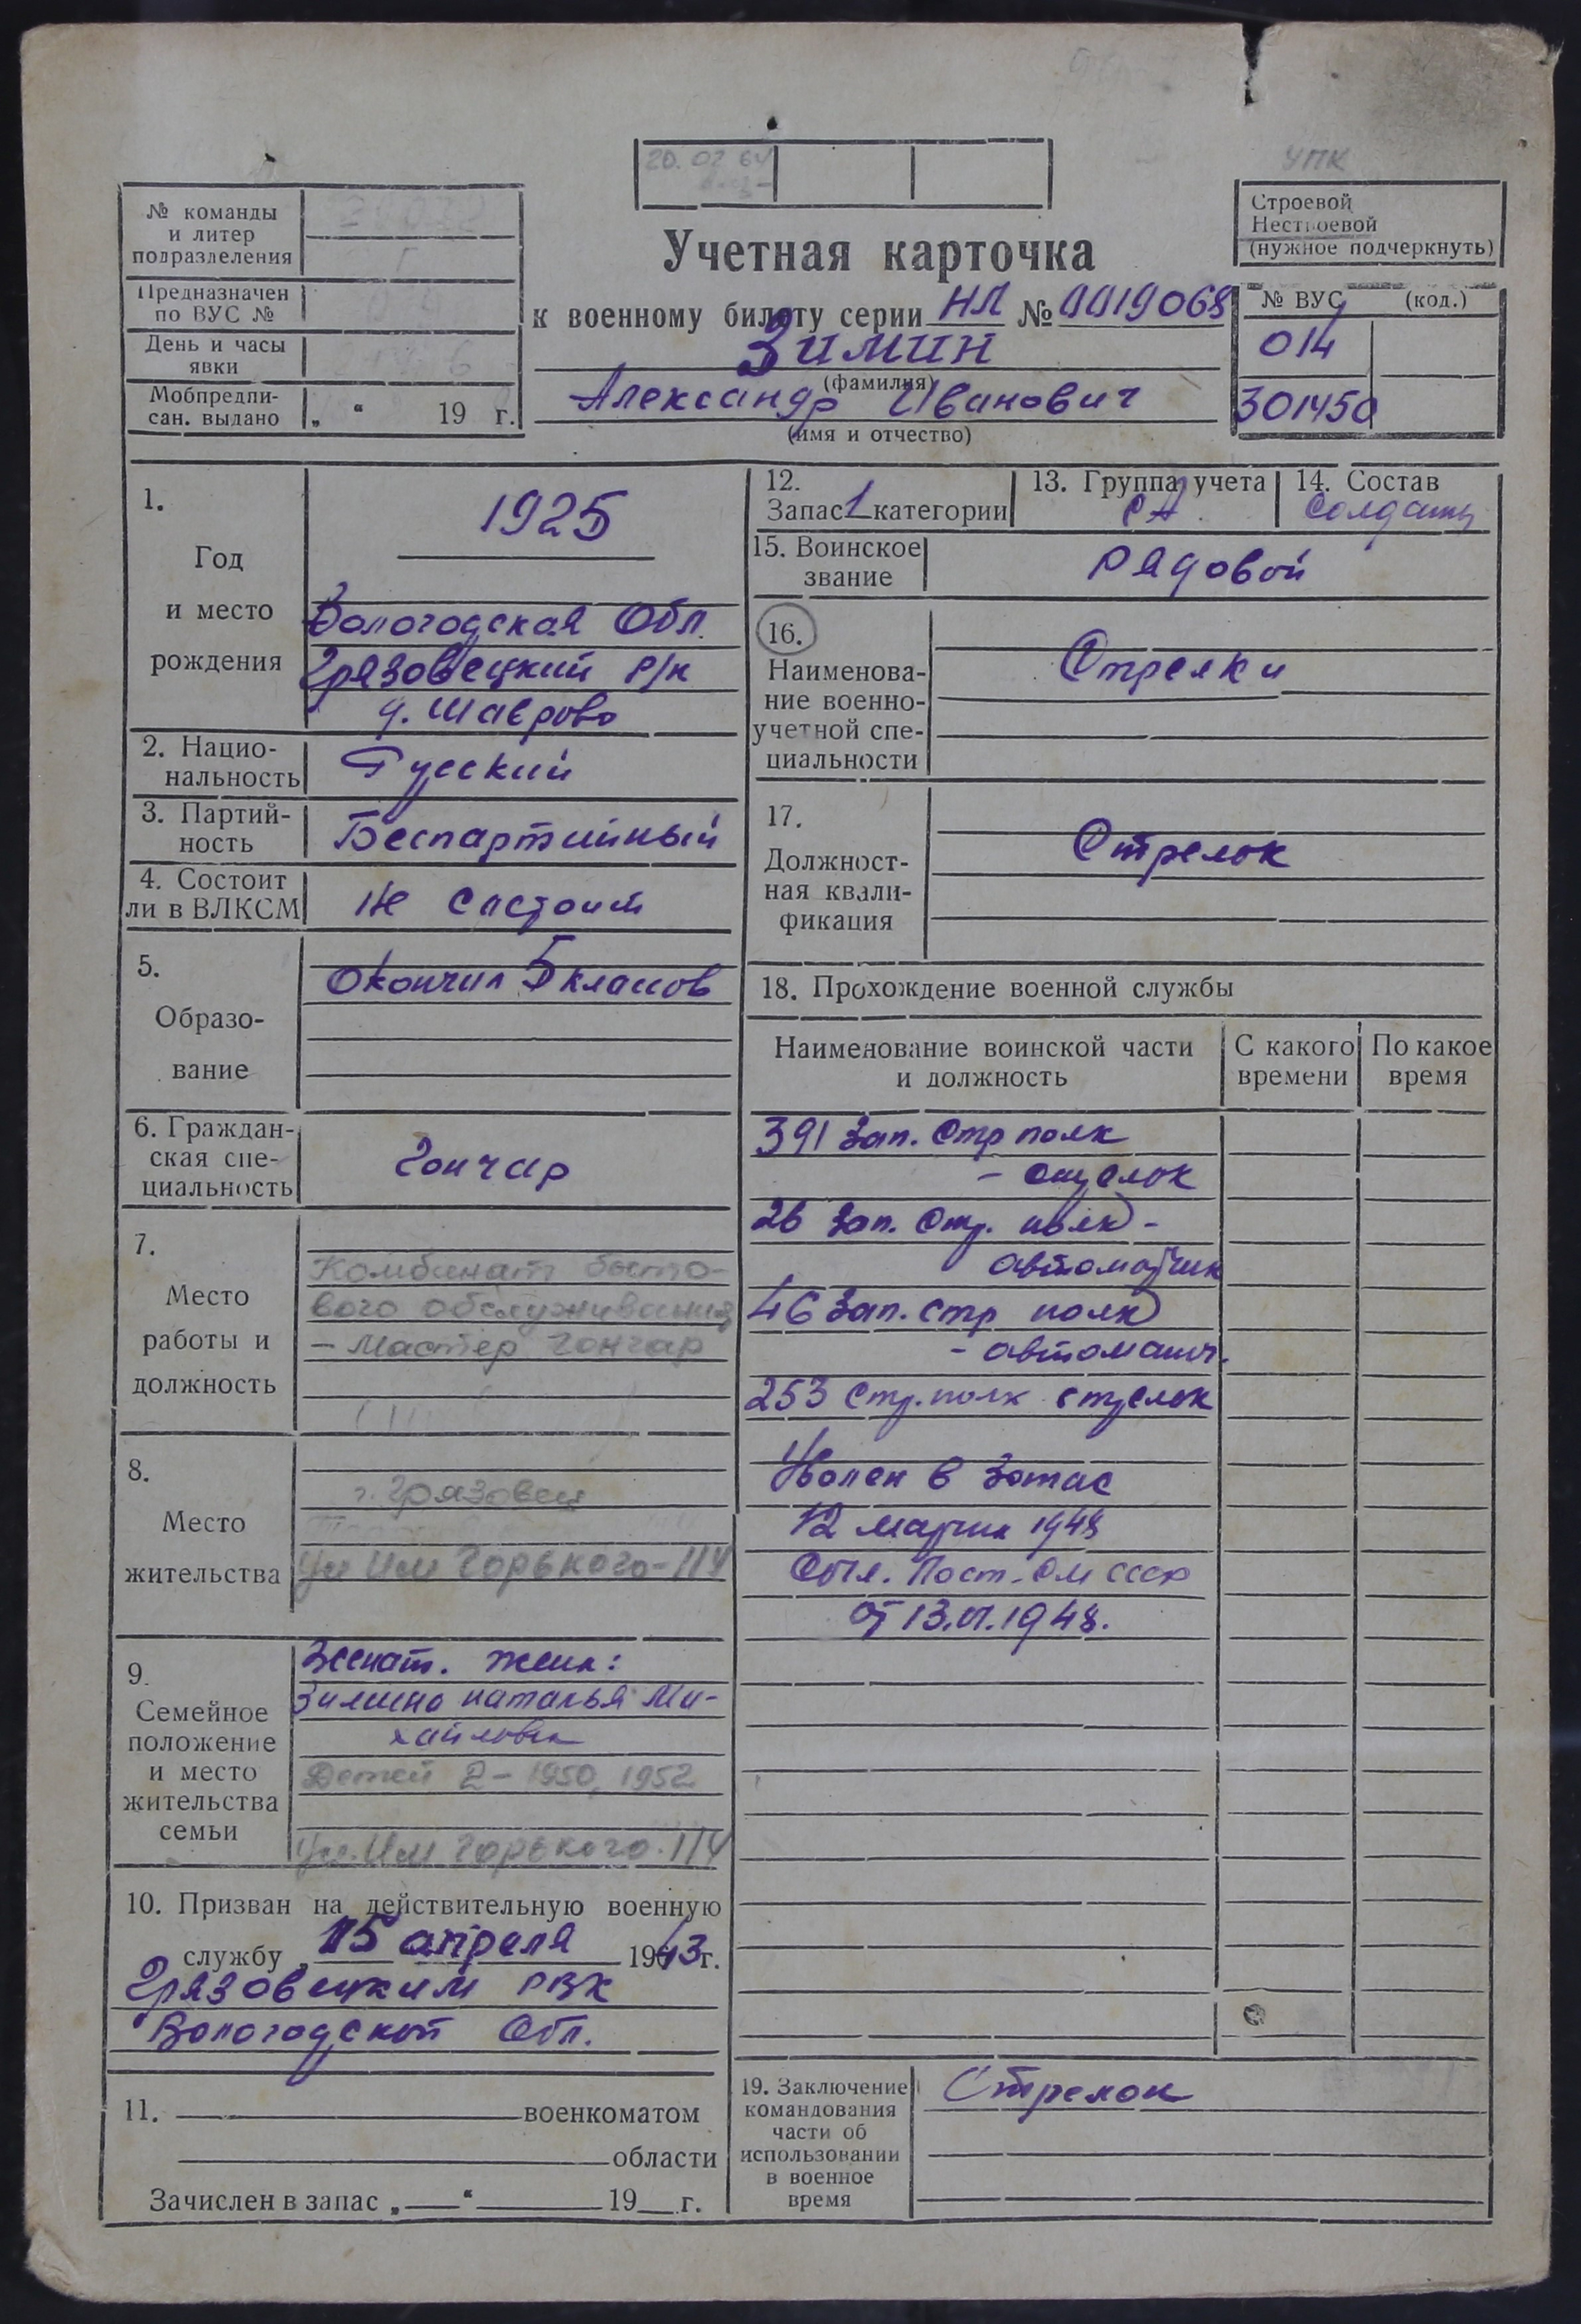 20.02 64
УПК
№ команды
и литер
подразделения
Предназначен
по ВУС №
День и часы
явки
Мобпредпи-
сан. выдано „ “ 19 г.
Учетная карточка
к военному билету серии НЛ № 0019068
Зимин
(фамилия)
Александр Иванович
(имя и отчество)
Строевой
Нестроевой
(нужное подчеркнуть)
№ ВУС (код.)
014
301450
1.
Год
и место
рождения
1925
Вологодская Обл.
Грязовецкий р/н
д. Шаврово
2. Нацио-
нальность
Русский
3. Партий-
ность
Беспартийный
4. Состоит
ли в ВЛКСМ
Не состоит
5.
Образо-
вание
Окончил 5 классов
6. Граждан-
ская спе-
циальность
Гончар
7.
Место
работы и
должность
Комбинат быто-
вого обслуживания
- Мастер гончар
8.
Место
жительства
г. Грязовец
Ул Им Горького-114
9.
Семейное
положение
и место
жительства
семьи
Женат. Жена:
Зимина Наталья Ми-
хайловна
Детей 2 - 1950, 1952
Ул. Им Горького. 114
10. Призван на действительную военную
службу „ 15 апреля 1943 г.
Грязовецким РВК
Вологодской Обл.
11. военкоматом
области
Зачислен в запас „ “ 19 г.
12.
Запас 1 категории
13. Группа учета
СА
14. Состав
Солдаты
15. Воинское
звание
Рядовой
16.
Наименова-
ние военно-
учетной спе-
циальности
Стрелки
17.
Должност-
ная квали-
фикация
Стрелок
18. Прохождение военной службы
Наименование воинской части
и должность
С какого
времени
По какое
время
391 Зап. Стр полк
- стрелок
26 Зап. Стр. полк -
автоматчик
46 Зап. Стр полк
- автоматч.
253 Стр. полк стрелок
Уволен в Запас
12 марта 1948
Пост. СМ СССР
от 1948.
19. Заключение
командования
части об
использовании
в военное
время
Стрелок